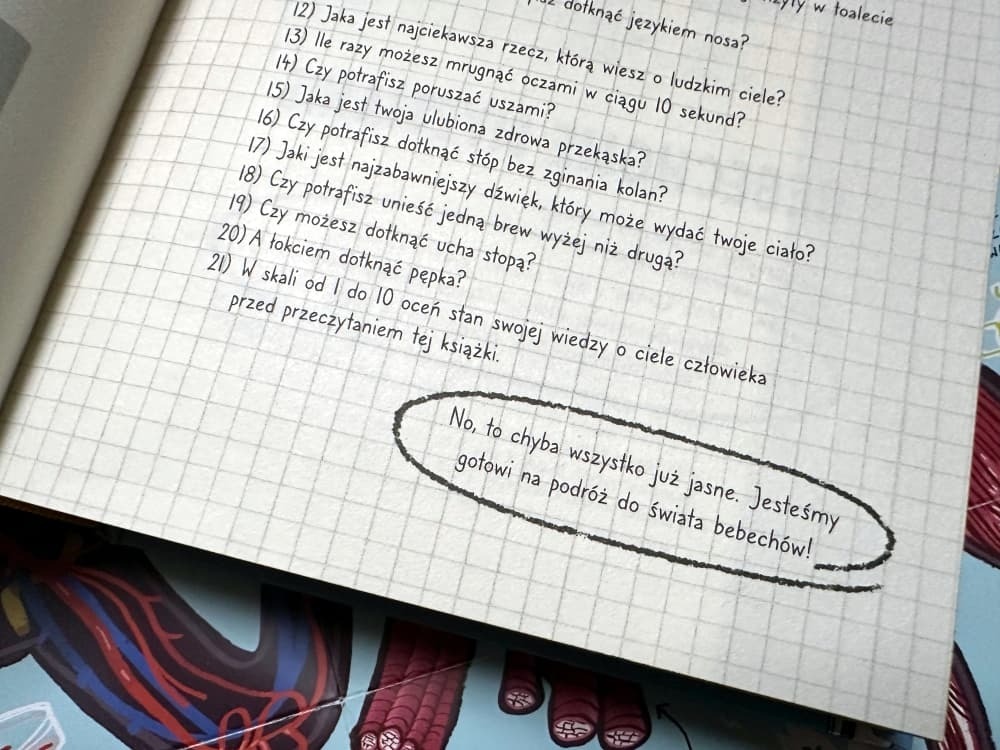 w toalecie
dotknąć językiem nosa?
12) Jaka jest najciekawsza rzecz, którą wiesz o ludzkim ciele?
13) Ile razy możesz mrugnąć oczami w ciągu 10 sekund?
14) Czy potrafisz poruszać uszami?
15) Jaka jest twoja ulubiona zdrowa przekąska?
16) Czy potrafisz dotknąć stóp bez zginania kolan?
17) Jaki jest najzabawniejszy dźwięk, który może wydać twoje ciało?
18) Czy potrafisz unieść jedną brew wyżej niż drugą?
19) Czy możesz dotknąć ucha stopą?
20) A łokciem dotknąć pępka?
21) W skali od 1 do 10 oceń stan swojej wiedzy o ciele człowieka
przed przeczytaniem tej książki.
No, to chyba wszystko już jasne. Jesteśmy
gotowi na podróż do świata bebechów!